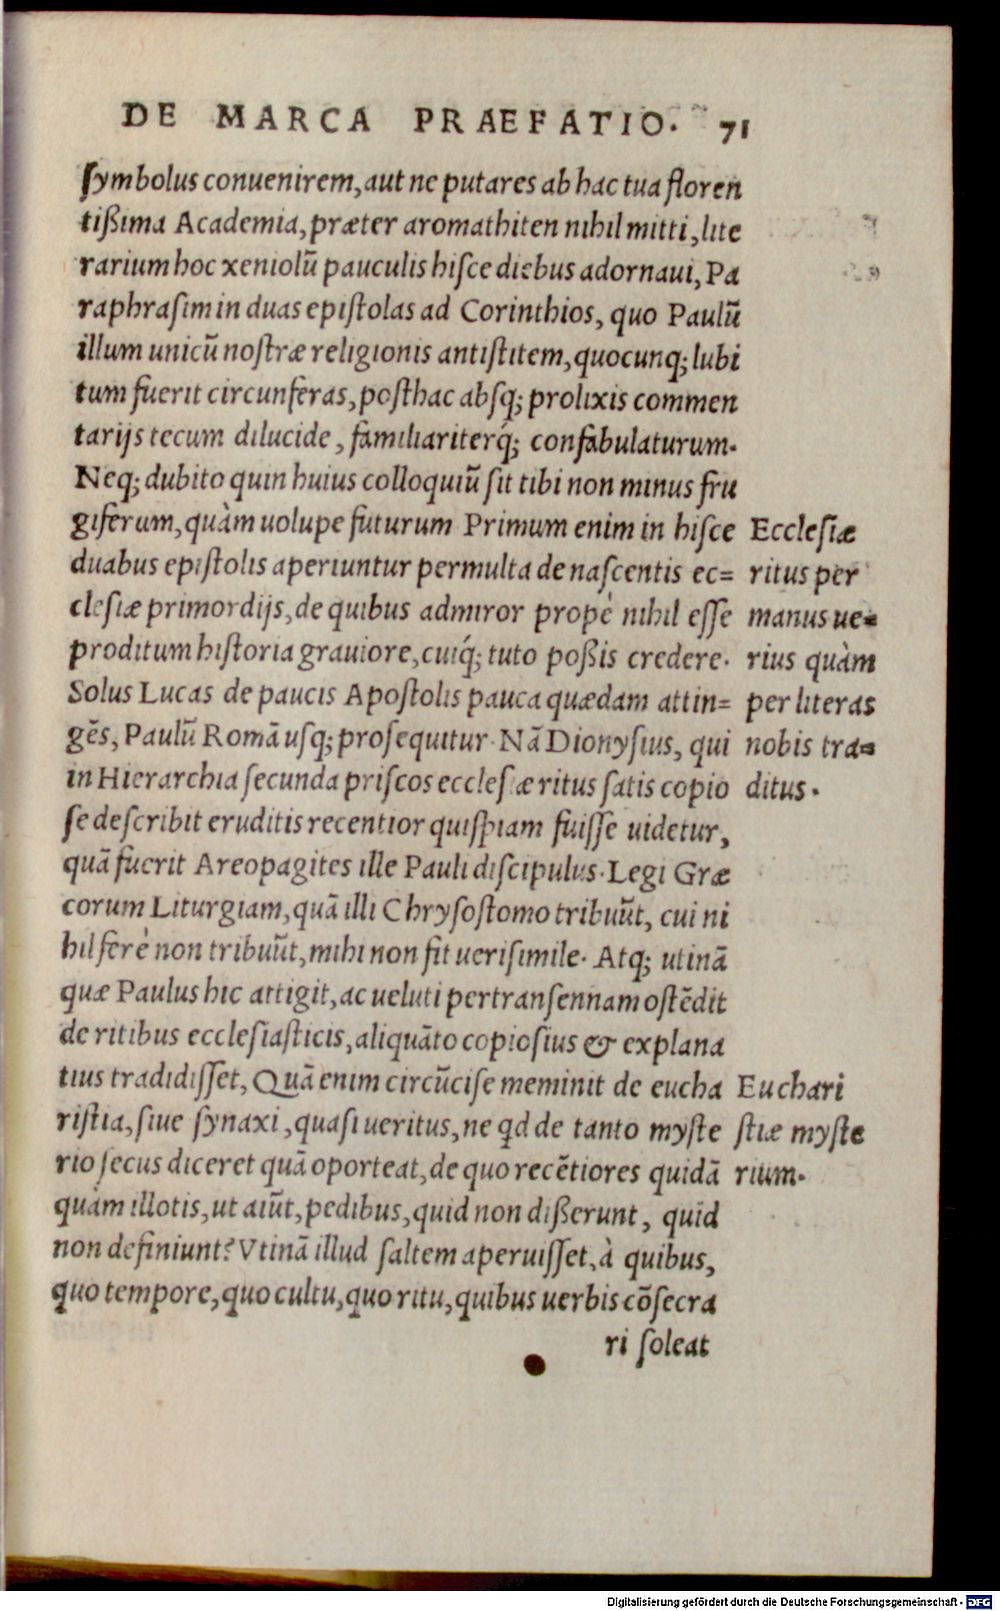 DE MARCA PRAEFATIO. 71
ſymbolus conuenirem, aut ne putares ab hac tua floren
tißima Academia, præter aromathiten nihil mitti, lite
rarium hoc xeniolũ pauculis hiſce diebus adornaui, Pa
raphraſim in duas epiſtolas ad Corinthios, quo Paulũ
illum unicũ noſtræ religionis antiſtitem, quocunq; lubi
tum fuerit circunferas, poſthac abſq; prolixis commen
tarijs tecum dilucide, familiariterq́; confabulaturum.
Neq; dubito quin huius colloquiũ ſit tibi non minus fru
giferum, quàm uolupe futurum Primum enim in hiſce
duabus epiſtolis aperiuntur permulta de naſcentis ec=
cleſiæ primordijs, de quibus admiror propè nihil eſſe
proditum hiſtoria grauiore, cuiq́; tuto poßis credere.
Solus Lucas de paucis Apoſtolis pauca quædam attin=
gẽs, Paulũ Romã uſq; proſequitur. Nã Dionyſius, qui
in Hierarchia ſecunda priſcos eccleſiæ ritus ſatis copio
ſe deſcribit eruditis recentior quiſpiam fuiſſe uidetur,
quã fuerit Areopagites ille Pauli diſcipulus. Legi Græ
corum Liturgiam, quã illi Chryſoſtomo tribuũt, cui ni
hil ferè non tribuũt, mihi non fit ueriſimile. Atq; utinã
quæ Paulus hic attigit, ac ueluti per tranſennam oſtẽdit
de ritibus eccleſiaſticis, aliquãto copioſius & explana
tius tradidiſſet, Quã enim circũciſe meminit de eucha
riſtia, ſiue ſynaxi, quaſi ueritus, ne qd de tanto myſte
rio ſecus diceret quã oporteat, de quo recẽtiores quidã
quàm illotis, ut aiũt, pedibus, quid non dißerunt, quid
non definiunt? Vtinã illud ſaltem aperuiſſet, à quibus,
quo tempore, quo cultu, quo ritu, quibus uerbis cõſecra
ri ſoleat
Eccleſiæ
ritus per
manus ue=
rius quàm
per literas
nobis tra=
ditus.
Euchari
ſtiæ myſte
rium.
Digitalisierung gefördert durch die Deutsche Forschungsgemeinschaft - DFG